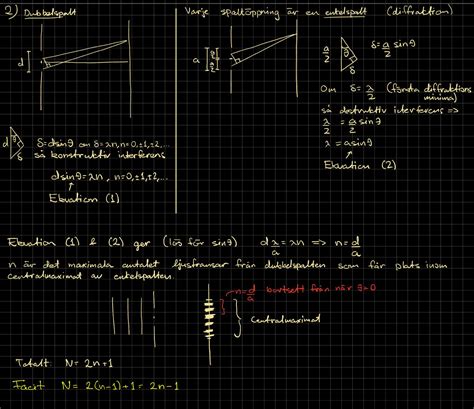 2) Dubbelspalt
d
d δ
δ = d sin θ om δ = λn, n=0,±1,±2,...
så konstruktiv interferens
d sin θ = λn, n=0,±1,±2,...
Ekvation (1)
Varje spaltöppning är en enkelspalt (diffraktion)
a
a/2
a/2 δ
δ = a/2 sin θ
Om δ = λ/2 (första diffraktions
minima)
så destruktiv interferens =>
λ/2 = a/2 sin θ
λ = a sin θ
Ekvation (2)
Ekvation (1) & (2) ger (lös för sin θ) d λ/a = λn => n = d/a
n är det maximala antalet ljusfransar från dubbelspalten som får plats inom
centralmaximat av enkelspalten.
n = d/a bortsett från när θ=0
Centralmaximat
Totalt: N = 2n+1
Facit N = 2(n-1)+1 = 2n-1